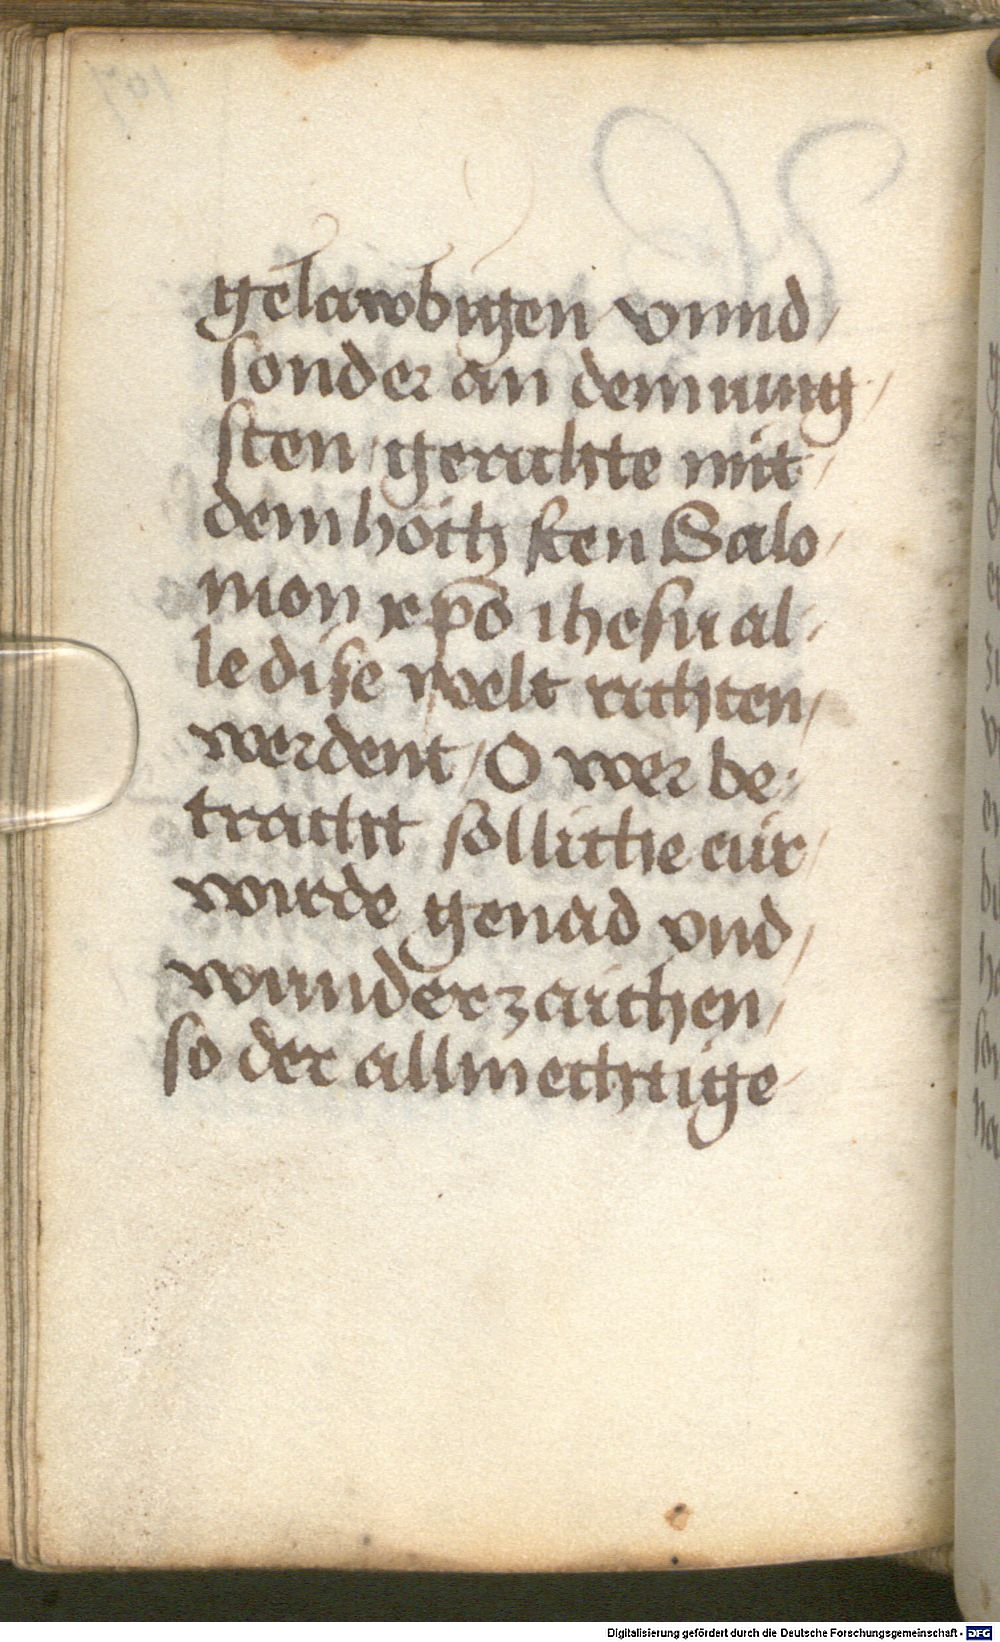 gelawbigen vnnd /
sonder an dem iung /
sten gerichte mit /
dem hoch sten Salo /
mon xpo ihesu al /
le dise welt richten /
werdent / O wer be /
tracht solliche eur /
wirde genad vnd /
wunderzaichen /
so der allmechtige
Digitalisierung gefördert durch die Deutsche Forschungsgemeinschaft - DFG